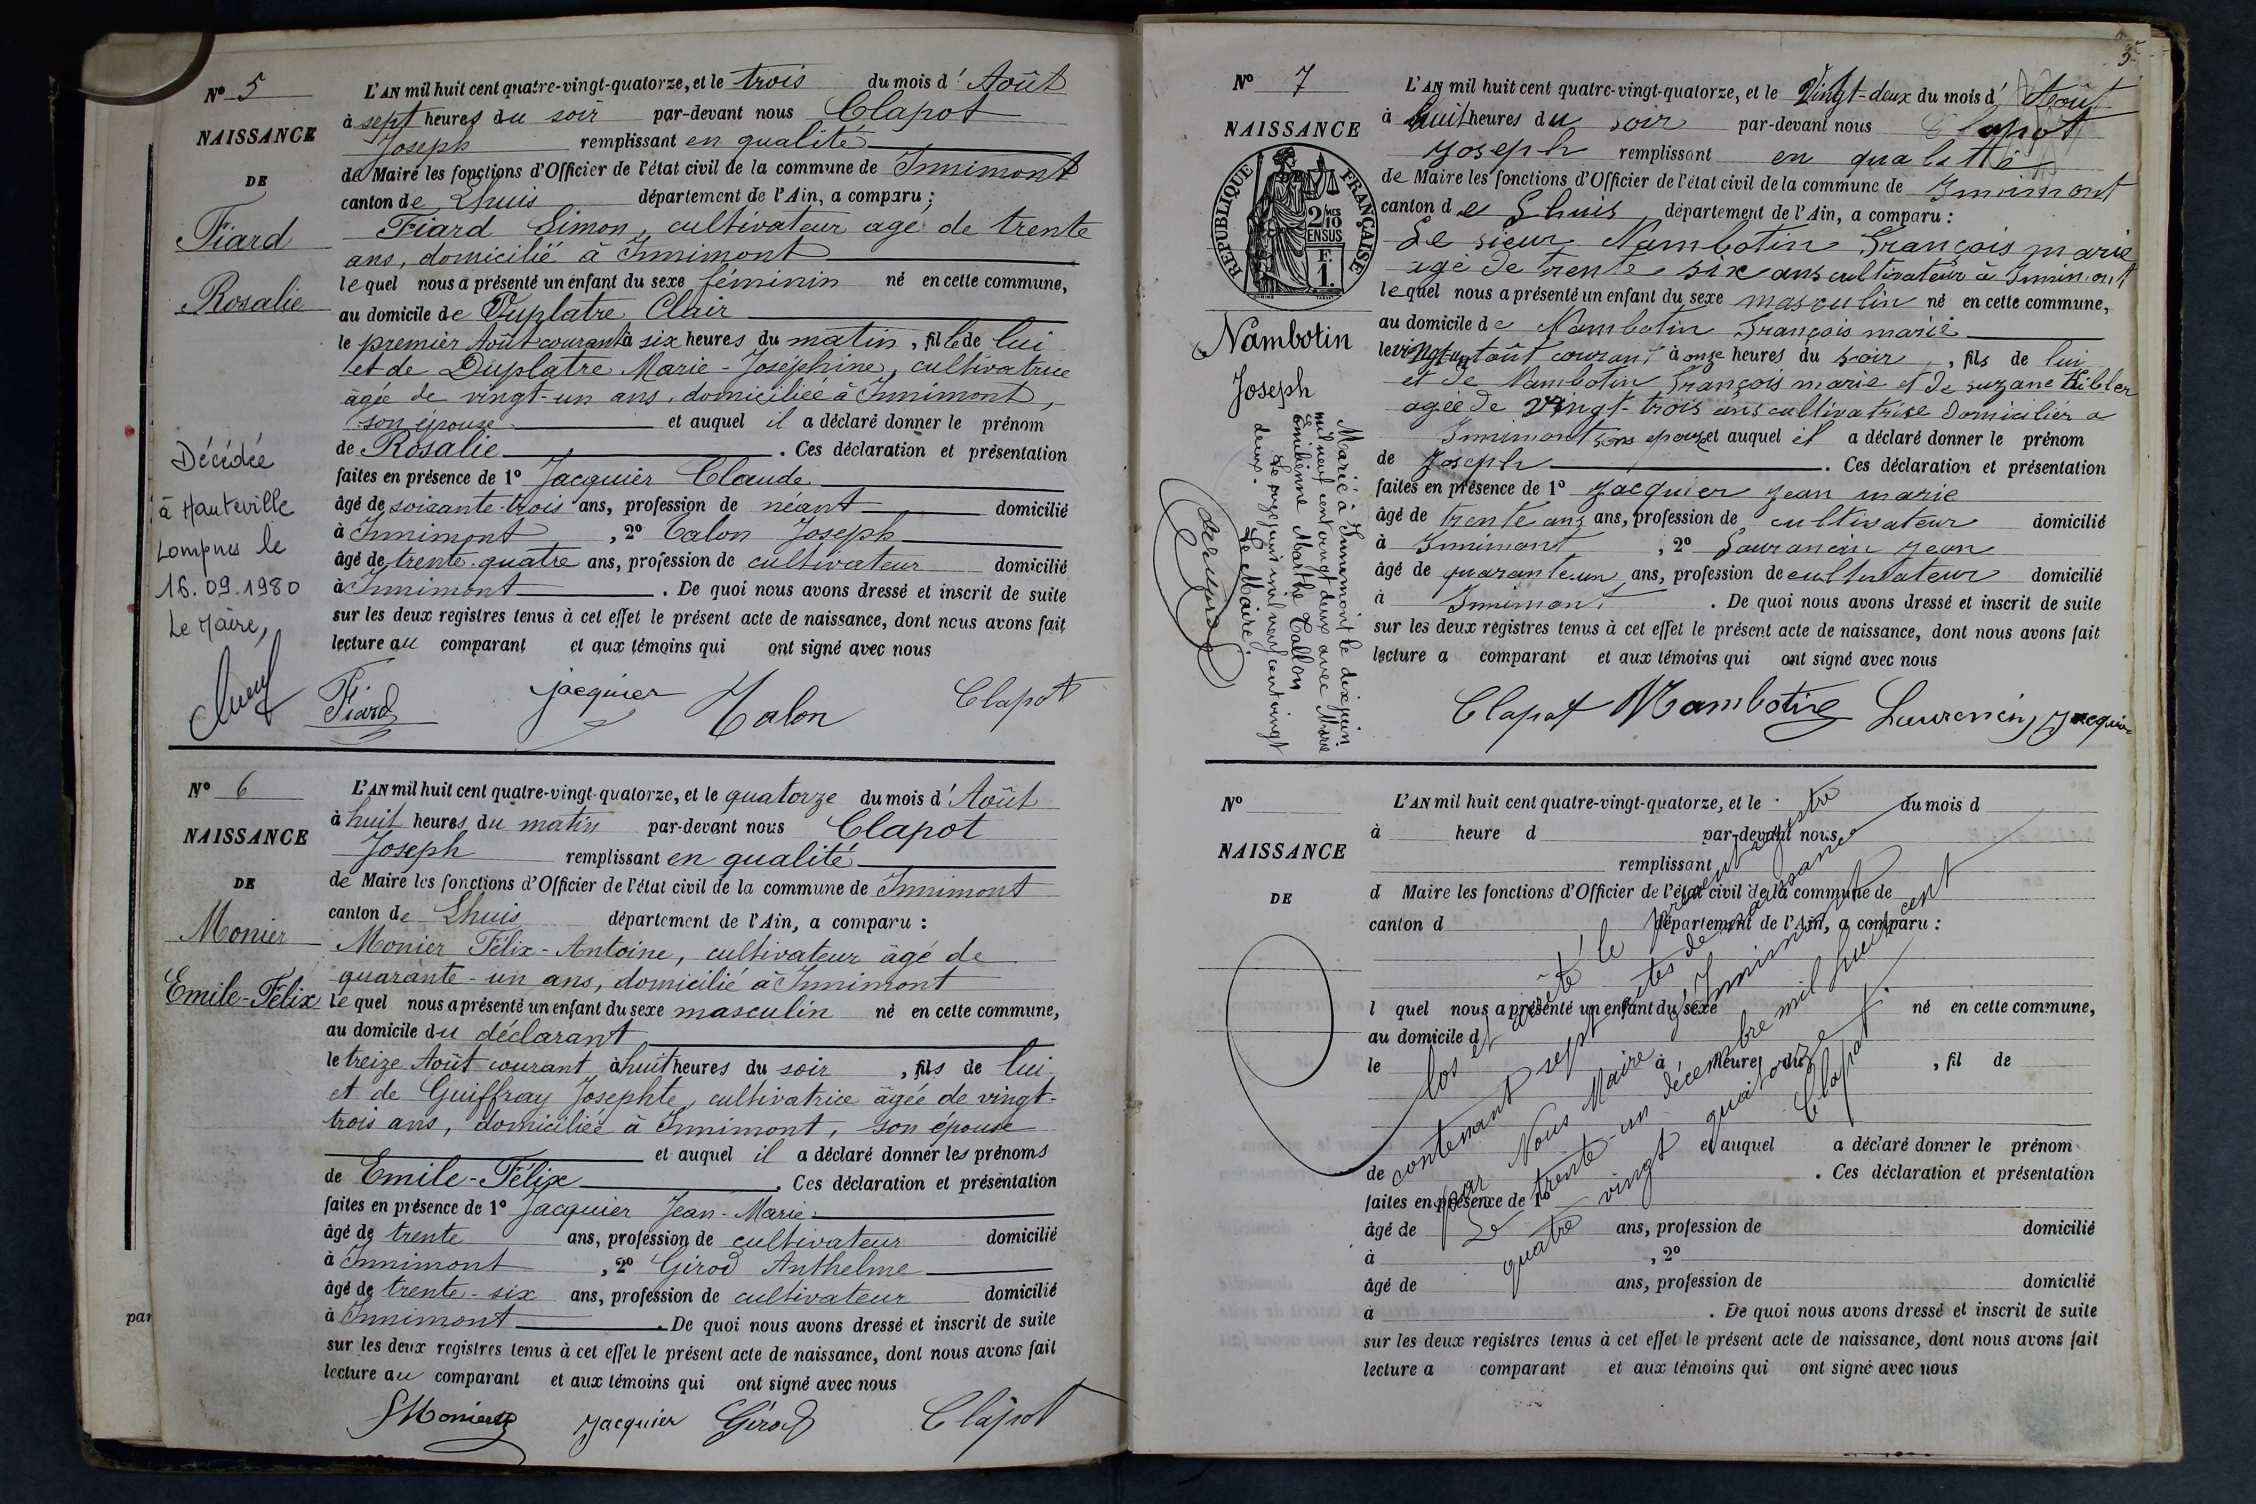 N° 5
NAISSANCE
DE
Fiard
Rosalie
Décédée
à Hauteville
Lompnes le
16.09.1980
Le Maire,
L'AN mil huit cent quatre-vingt-quatorze, et le trois du mois d'Août
à sept heures du soir par-devant nous Clapot
Joseph remplissant en qualité
de Maire les fonctions d'Officier de l'état civil de la commune de Innimont
canton de Lhuis département de l'Ain, a comparu :
Fiard Simon, cultivateur agé de trente
ans, domicilié à Innimont
lequel nous a présenté un enfant du sexe féminin né en cette commune,
au domicile de Duplatre Clair
le premier Août courant à six heures du matin, fille de lui
et de Duplatre Marie-Joséphine, cultivatrice
âgée de vingt-un ans, domiciliée à Innimont,
son épouse et auquel il a déclaré donner le prénom
de Rosalie. Ces déclaration et présentation
faites en présence de 1° Jacquier Claude
âgé de soixante-trois ans, profession de néant domicilié
à Innimont, 2° Talon Joseph
âgé de trente-quatre ans, profession de cultivateur domicilié
à Innimont. De quoi nous avons dressé et inscrit de suite
sur les deux registres tenus à cet effet le présent acte de naissance, dont nous avons fait
lecture au comparant et aux témoins qui ont signé avec nous
Fiard jacquier Talon Clapot
N° 6
NAISSANCE
DE
Monier
Emile-Félix
L'AN mil huit cent quatre-vingt-quatorze, et le quatorze du mois d'Août
à huit heures du matin par-devant nous Clapot
Joseph remplissant en qualité
de Maire les fonctions d'Officier de l'état civil de la commune de Innimont
canton de Lhuis département de l'Ain, a comparu :
Monier Félix-Antoine, cultivateur âgé de
quarante-un ans, domicilié à Innimont
lequel nous a présenté un enfant du sexe masculin né en cette commune,
au domicile du déclarant
le treize Août courant à huit heures du soir, fils de lui
et de Guiffray Josephte, cultivatrice âgée de vingt-
trois ans, domiciliée à Innimont, son épouse
et auquel il a déclaré donner les prénoms
de Emile-Félix. Ces déclaration et présentation
faites en présence de 1° Jacquier Jean-Marie
âgé de trente ans, profession de cultivateur domicilié
à Innimont, 2° Girod Anthelme
âgé de trente-six ans, profession de cultivateur domicilié
à Innimont. De quoi nous avons dressé et inscrit de suite
sur les deux registres tenus à cet effet le présent acte de naissance, dont nous avons fait
lecture au comparant et aux témoins qui ont signé avec nous
Monier Jacquier Girod Clapot
par
3
N° 7
NAISSANCE
REPUBLIQUE FRANÇAISE
2/10 MES
EN SUS
F.
1.
Nambotin
Joseph
Marié à Innimont le dix juin
mil neuf cent vingt deux avec Marie
Emilienne Marthe Tallon
Le onze juin mil neuf cent vingt
deux.
Le Maire,
L'AN mil huit cent quatre-vingt-quatorze, et le Vingt-deux du mois d'Août
à huit heures du soir par-devant nous Clapot
Joseph remplissant en qualité
de Maire les fonctions d'Officier de l'état civil de la commune de Innimont
canton de Lhuis, département de l'Ain, a comparu :
Le sieur Nambotin François marie
agé de trente six ans cultivateur à Innimont
lequel nous a présenté un enfant du sexe masculin né en cette commune,
au domicile de Nambotin François marie
le vingt un août courant à onze heures du soir, fils de lui
et de Nambotin François marie et de suzane
agée de vingt-trois ans cultivatrise domicilier a
Innimont son epouze et auquel il a déclaré donner le prénom
de Joseph. Ces déclaration et présentation
faites en présence de 1° Jacquier jean marie
âgé de trente ans ans, profession de cultivateur domicilié
à Innimont, 2° Laurancin jean
âgé de quarante un ans, profession de cultivateur domicilié
à Innimont. De quoi nous avons dressé et inscrit de suite
sur les deux registres tenus à cet effet le présent acte de naissance, dont nous avons fait
lecture a comparant et aux témoins qui ont signé avec nous
Clapot Nambotin Laurencin Jacquier
N°
NAISSANCE
DE
L'AN mil huit cent quatre-vingt-quatorze, et le du mois d
à heure d par-devant nous
remplissant
d Maire les fonctions d'Officier de l'état civil de la commune de
canton d département de l'Ain, a comparu :
l quel nous a présenté un enfant du sexe né en cette commune,
au domicile d
le à heure du , fil de
et auquel a déclaré donner le prénom
de . Ces déclaration et présentation
faites en présence de 1°
âgé de ans, profession de domicilié
à , 2°
âgé de ans, profession de domicilié
à . De quoi nous avons dressé et inscrit de suite
sur les deux registres tenus à cet effet le présent acte de naissance, dont nous avons fait
lecture a comparant et aux témoins qui ont signé avec nous
Clos et arrêté le présent registre
contenant sept actes de naissance
par Nous Maire d'Innimont
Le trente-un décembre mil huit cent
quatre vingt quatorze.
Clapot